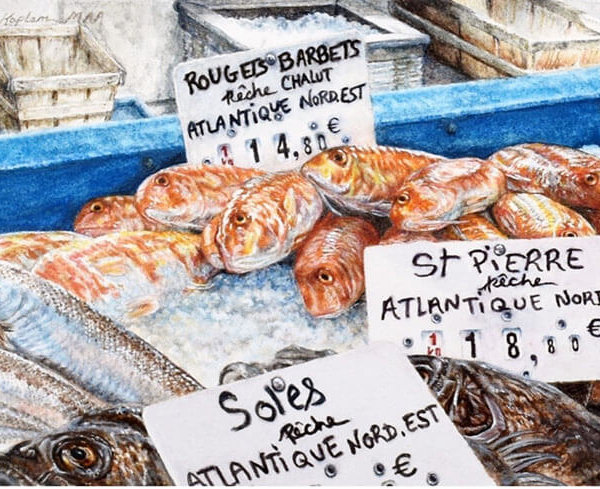 ROUGETS BARBETS
Pêche CHALUT
ATLANTIQUE NORD.EST
1 kg 14,80 €
St PIERRE
Pêche
ATLANTIQUE NORD
1 kg 18,80 €
Soles
Pêche
ATLANTIQUE NORD.EST
€